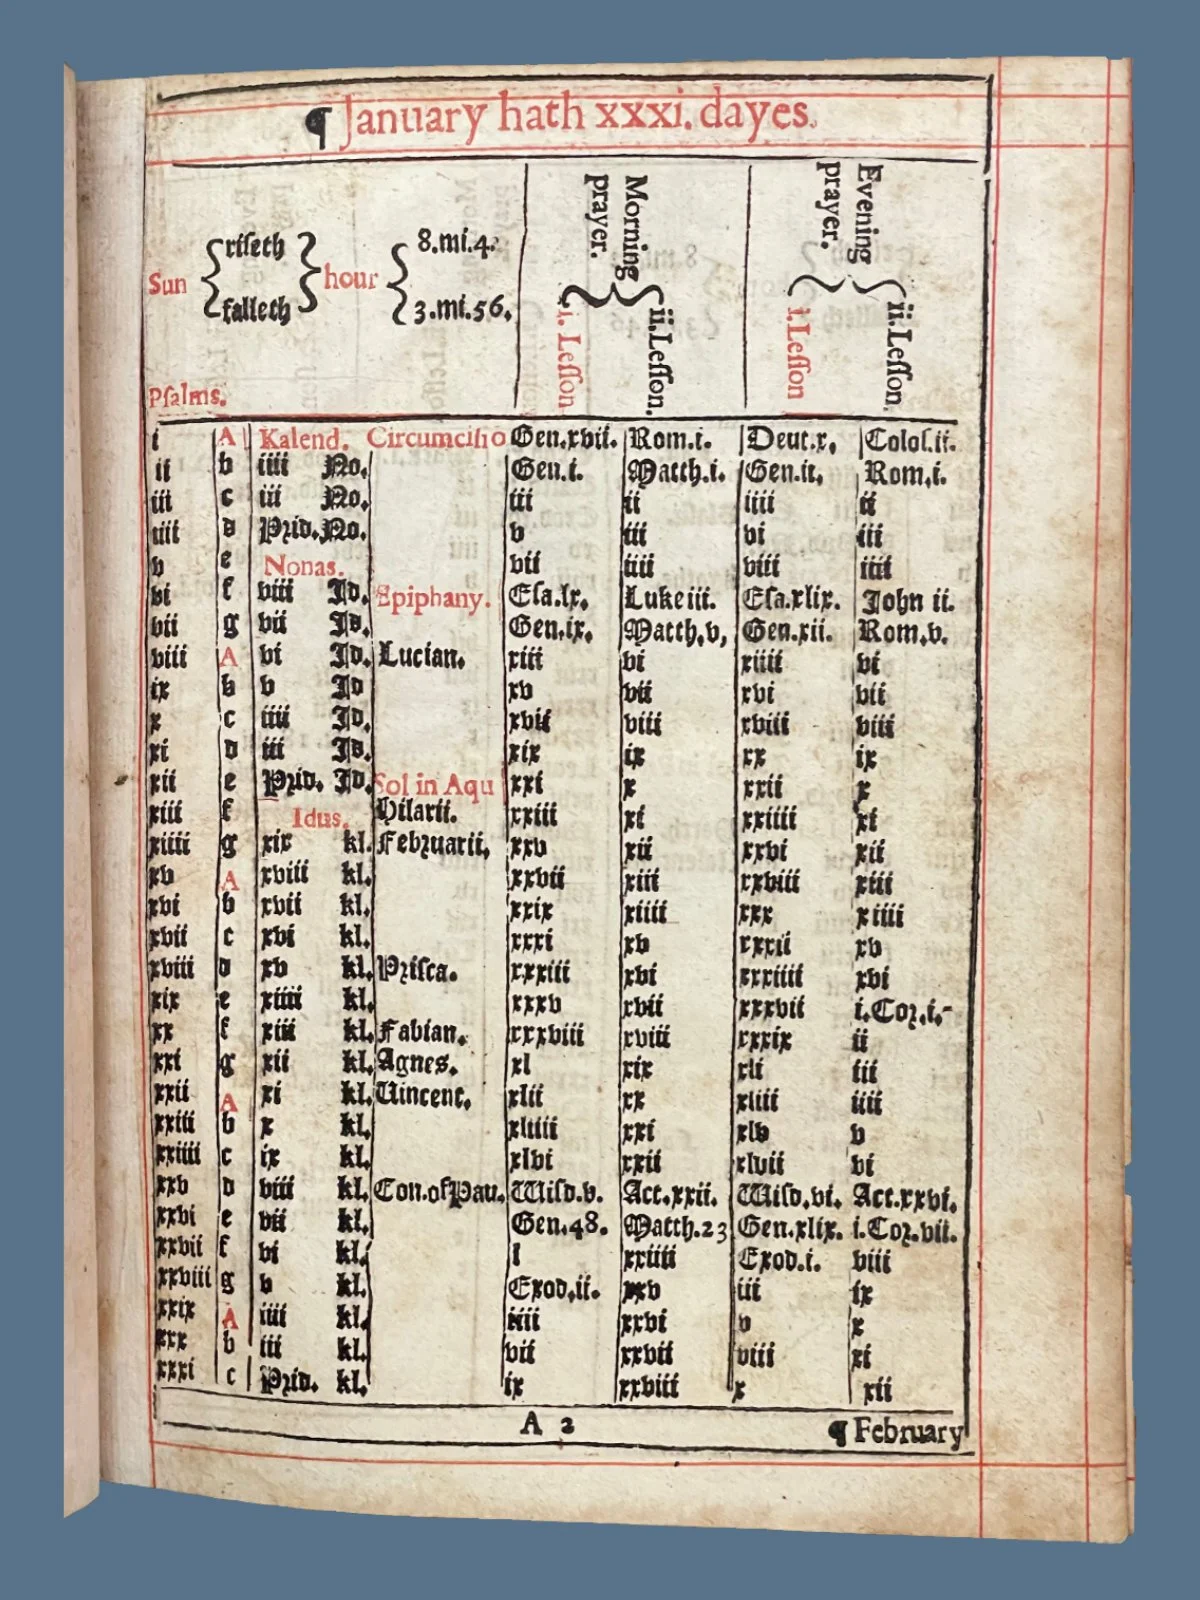 ¶ January hath xxxi. dayes.
Sun { riſeth falleth } hour { 8.mi.4. 3.mi.56.
Morning prayer. i. Leſſon. ii. Leſſon.
Evening prayer. i. Leſſon ii. Leſſon.
Pſalms.
i A Kalend. Circumciſio Gen.xvii. Rom.i. Deut.x. Coloſ.ii.
ii b iiii No. Gen.i. Matth.i. Gen.ii. Rom.i.
iii c iii No. iii ii iiii ii
iiii d Prid. No. v iii vi iii
v e Nonas. vii iiii viii iiii
vi f viii Id. Epiphany. Eſa.lx. Luke iii. Eſa.xlix. John ii.
vii g vii Id. Gen.ix. Matth.v, Gen.xii. Rom.v.
viii A vi Id. Lucian. xiii vi xiiii vi
ix b v Id xv vii xvi vii
x c iiii Id. xvii viii xviii viii
xi d iii Id. xix ix xx ix
xii e Prid. Id. Sol in Aqu xxi x xxii x
xiii f Idus. Hilarii. xxiii xi xxiiii xi
xiiii g xix kl. Februarii. xxv xii xxvi xii
xv A xviii kl. xxvii xiii xxviii xiii
xvi b xvii kl. xxix xiiii xxx xiiii
xvii c xvi kl. xxxi xv xxxii xv
xviii d xv kl. Priſca. xxxiii xvi xxxiiii xvi
xix e xiiii kl. xxxv xvii xxxvii i.Cor.i.
xx f xiii kl. Fabian. xxxviii xviii xxxix ii
xxi g xii kl. Agnes. xl xix xli iii
xxii A xi kl. Uincent. xlii xx xliii iiii
xxiii b x kl. xliiii xxi xlv v
xxiiii c ix kl. xlvi xxii xlvii vi
xxv d viii kl. Con.of Pau. Wiſd.v. Act.xxii. Wiſd.vi. Act.xxvi.
xxvi e vii kl. Gen.48. Matth.23 Gen.xlix. i.Cor.vii.
xxvii f vi kl. l xxiiii Exod.i. viii
xxviii g v kl. Exod.ii. xxv iii ix
xxix A iiii kl. iiii xxvi v x
xxx b iii kl. vii xxvii viii xi
xxxi c Prid. kl. ix xxviii x xii
A 2 ¶ February